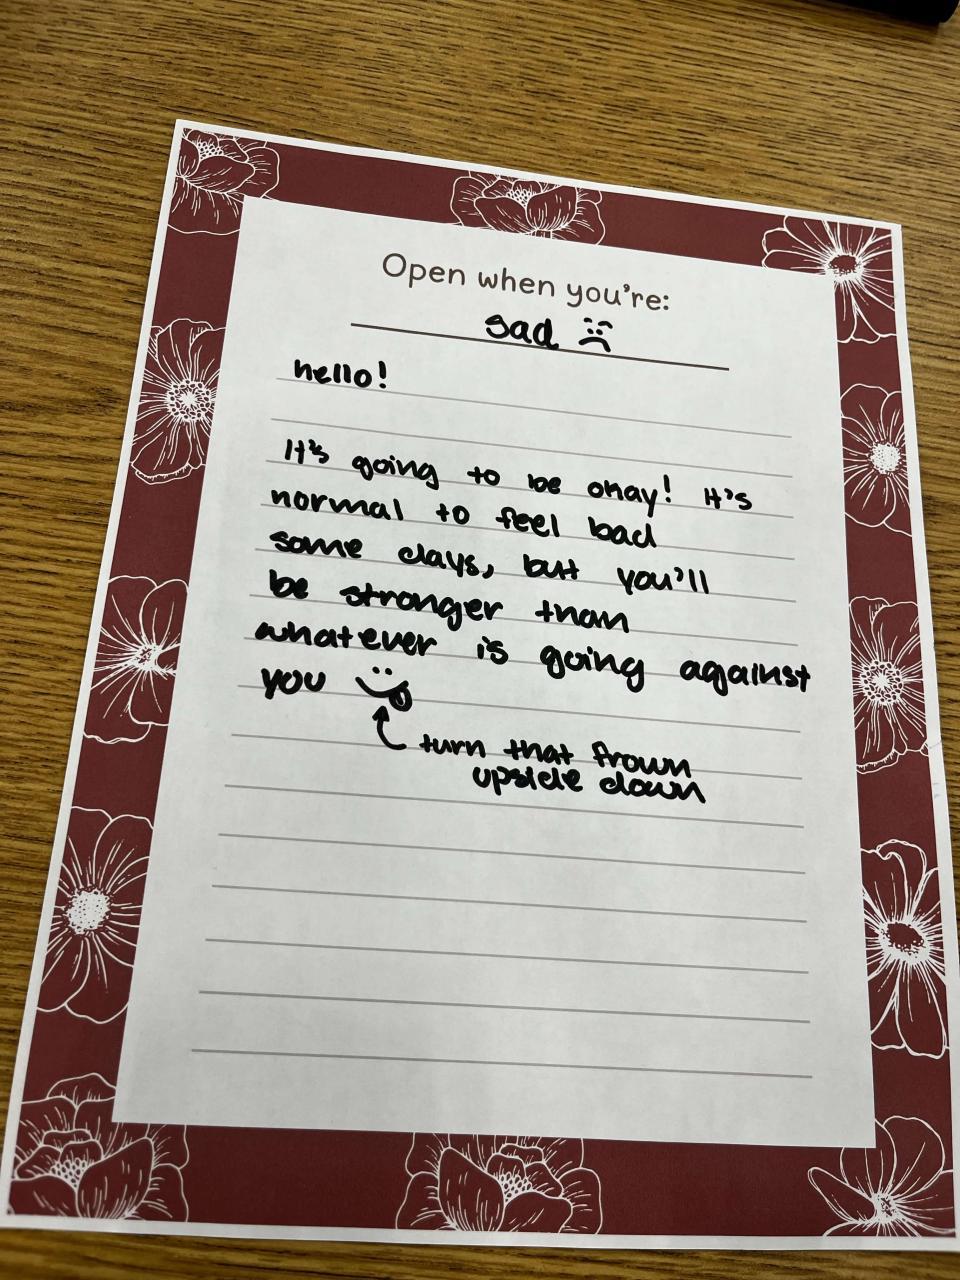 Open when you're:
sad
hello!
It's going to be okay! It's
normal to feel bad
some days, but you'll
be stronger than
whatever is going against
you
turn that frown
upside down